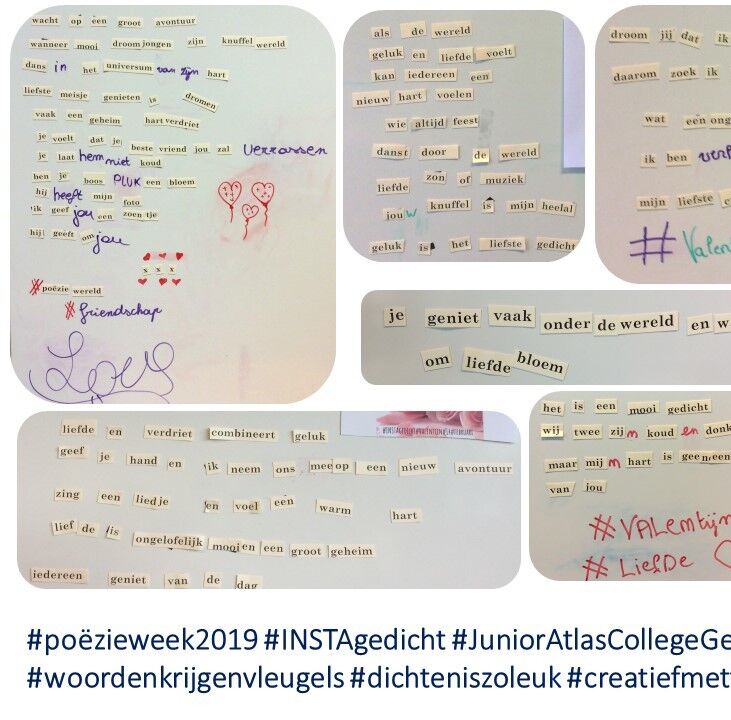 wacht op een groot avontuur
wanneer mooi droom jongen zijn knuffel wereld
dans in het universum van zijn hart
liefste meisje genieten is dromen
vaak een geheim hart verdriet
je voelt dat je beste vriend jou zal verrassen
je laat hem niet koud
hen je boos PLUK een bloem
hij heeft mijn foto
ik geef jou een zoen tje
hij geeft om jou
x x x
# poëzie wereld
# friendschap
Love
als de wereld
geluk en liefde voelt
kan iedereen een
nieuw hart voelen
wie altijd feest
danst door de wereld
liefde zon of muziek
jouw knuffel is mijn heelal
geluk is het liefste gedicht
droom jij dat ik
daarom zoek ik
wat een ong
ik ben verl
mijn liefste
# Valen
je geniet vaak onder de wereld en w
om liefde bloem
liefde en verdriet combineert geluk
geef je hand en ik neem ons mee op een nieuw avontuur
zing een lied je en voel een warm hart
lief de is ongelofelijk mooi en een groot geheim
iedereen geniet van de dag
het is een mooi gedicht
wij twee zijn koud en donk
maar mijn hart is geen een
van jou
# VALEMtijn
# LiefDe
#poëzieweek2019 #INSTAgedicht #JuniorAtlasCollegeGe
#woordenkrijgenvleugels #dichteniszoleuk #creatiefmet